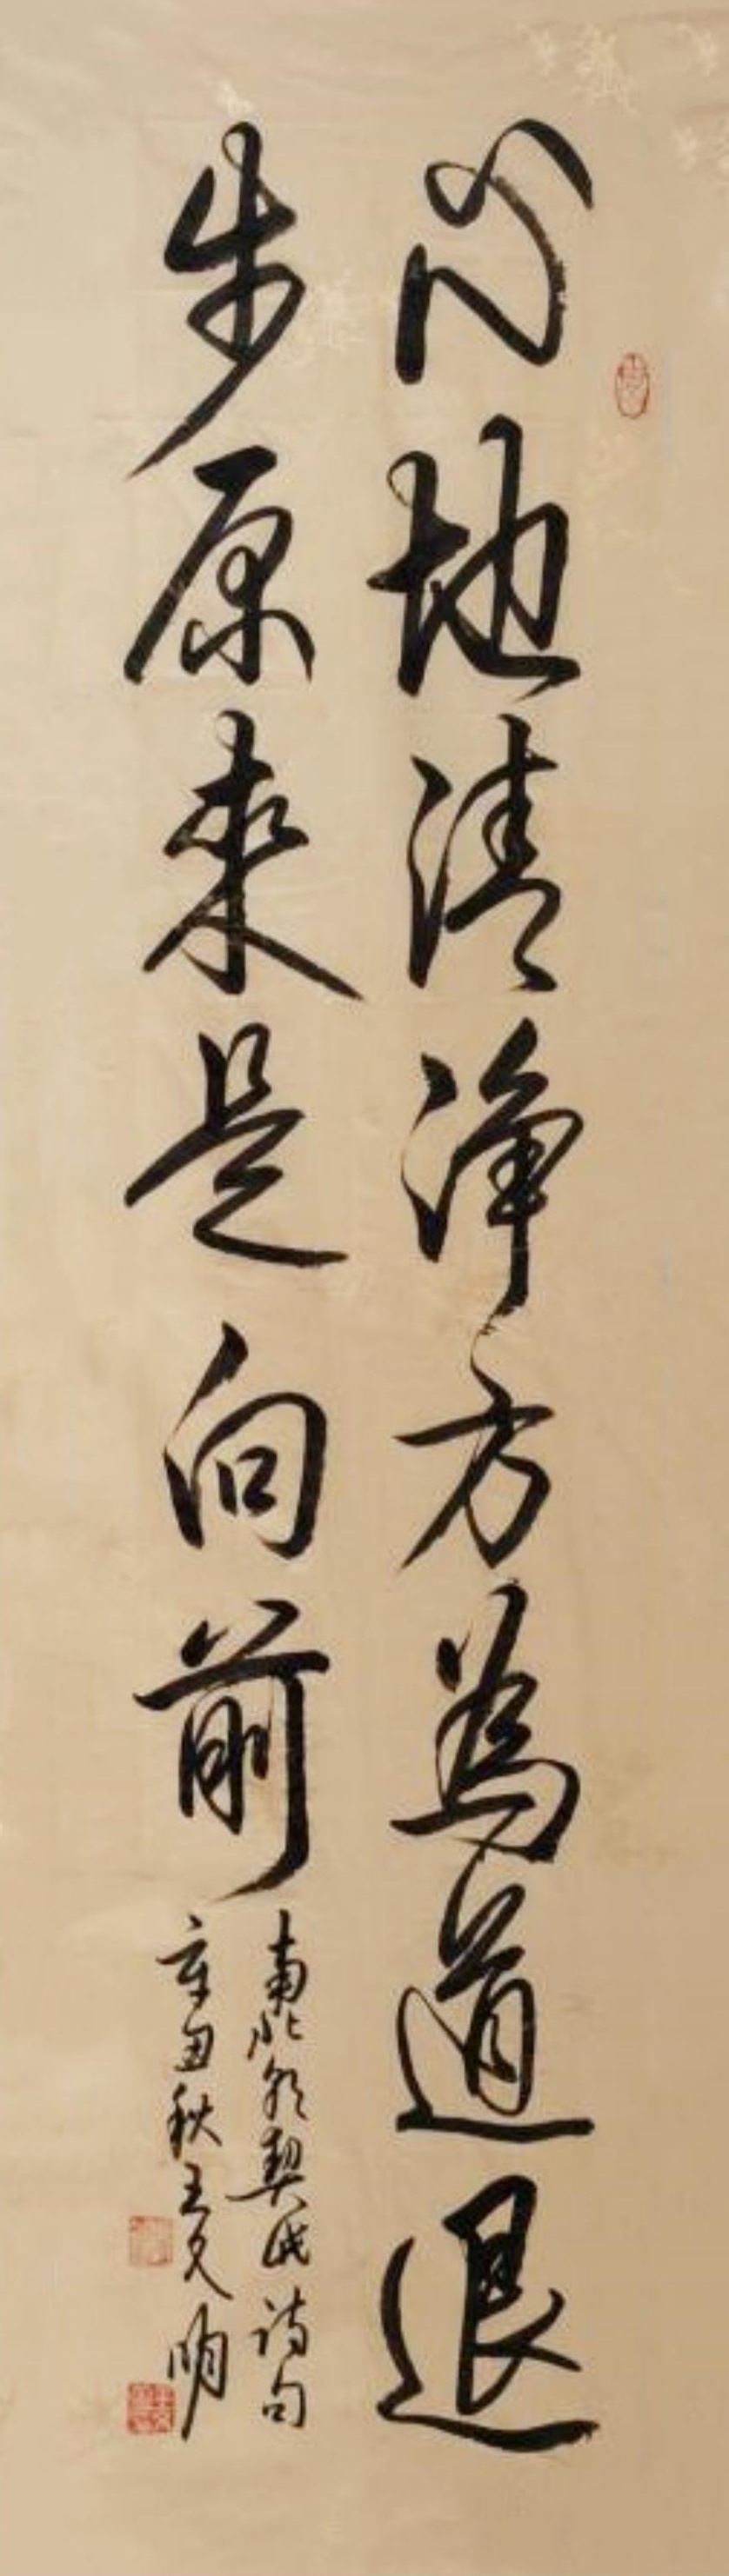 心地清淨方為道退
步原來是向前
南北朝契此詩句
辛丑秋王文明